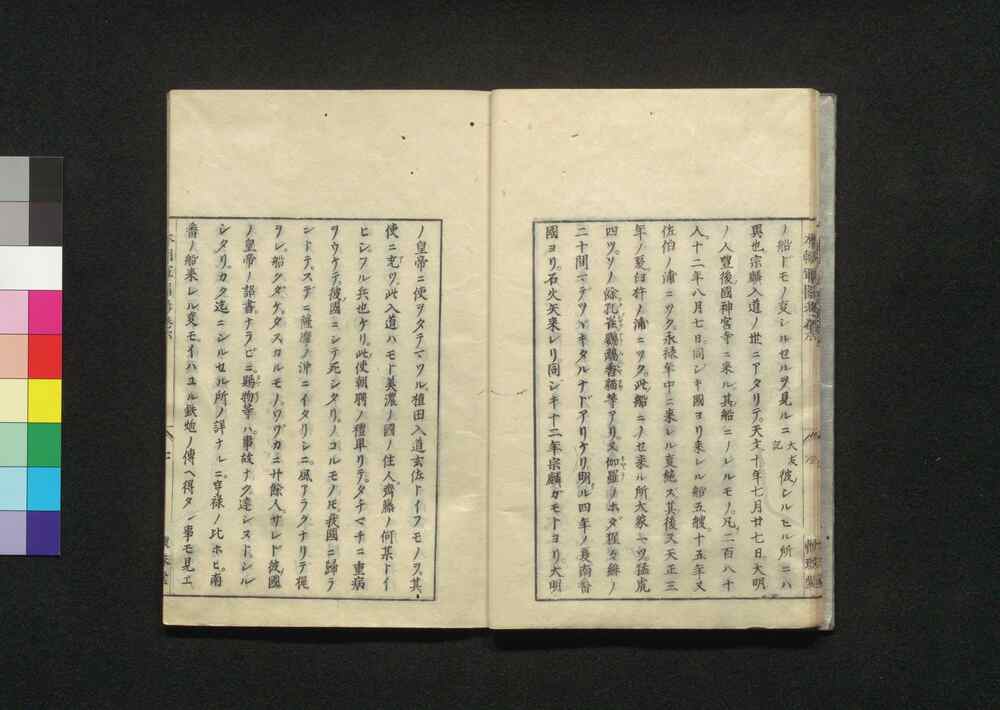 ノ船ドモノ支シルセルヲ見ルニ大友記彼シルセル所ニハ
異也宗麟入道ノ世ニアタリテ天文十年七月廿七日大明
ノ人豊後國神宮寺ニ来ル其船ニノレルモノ凡二百八十
人十二年八月七日同ジキ國ヨリ来レル舩五艘十五年又
佐伯ノ浦ニツク永禄年中ニ来レル支絶ス其後又天正三
年ノ夏臼杵ノ浦ニツク此船ニノセ来ル所大象一ツ猛虎
四ツソノ餘孔雀鸚鵡香猫等アリ又伽羅ノホダ猩々緋ノ
二十間マデツヾキタルナドアリケリ明ル四年ノ夏南番
國ヨリ石火矢来レリ同ジキ十二年宗麟ガモトヨリ大明
ノ皇帝ニ使ヲタテマツル植田入道玄佐トイフモノヲ其
使ニ充ツ此入道ハモト美濃ノ國ノ住人齊藤ノ何某トイ
ヒシフル兵也ケリ此使朝聘ノ禮畢リテタチマチニ重病
ヲウケテ彼國ニシテ死シタリノコルモノ氏我國ニ歸ラ
ントテステニ薩摩ノ沖ニイタリシニ風アラクナリテ
ヲレ船クダケタスカルモノワヅカニ廿餘人サレド彼國
ノ皇帝ノ詔書ナラビニ賜物等ハ事故ナク達シヌトシル
シタリカク迄ニシルセル所ノ詳ナレニ享禄ノ比ホヒ南
番ノ船来レル支モイハユル鉄炮ノ傳ヘ得タン事モ見エ